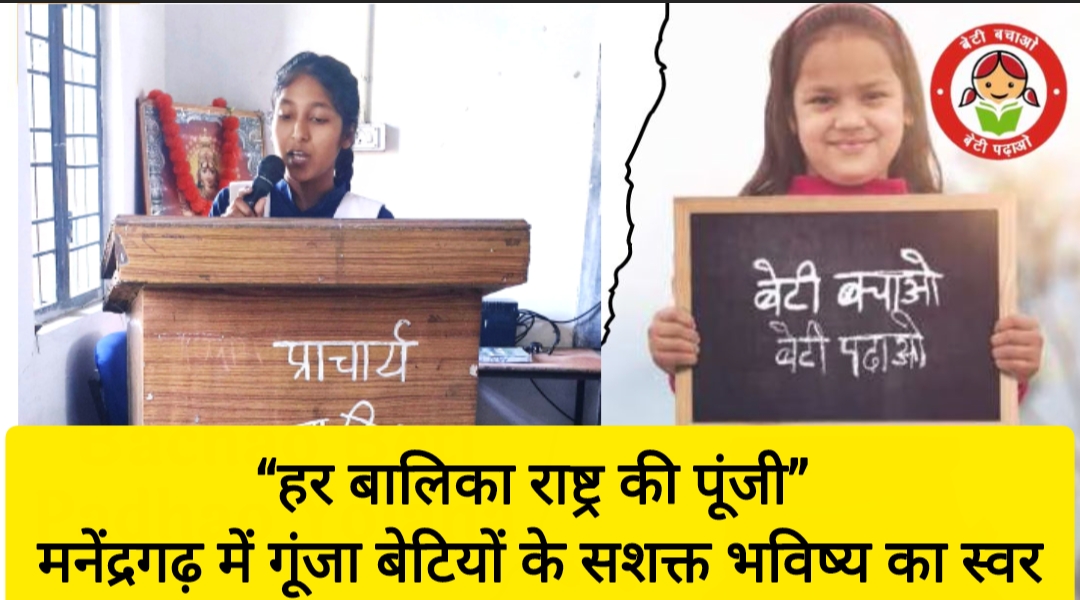 प्राचार्य
बेटी बचाओ
बेटी पढ़ाओ
बेटी बचाओ
बेटी पढाओ
“हर बालिका राष्ट्र की पूंजी”
मनेंद्रगढ़ में गूंजा बेटियों के सशक्त भविष्य का स्वर